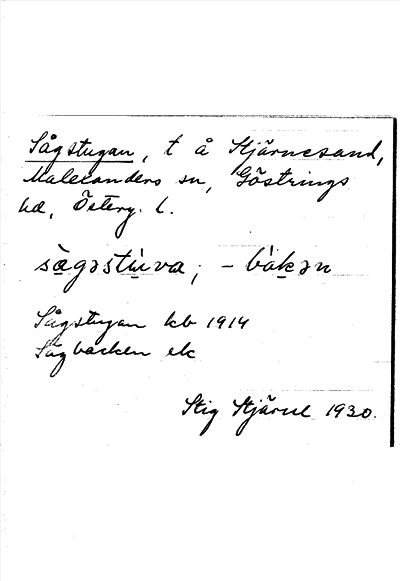 Sågstugan, t å Stjärnesand,
Malexanders sn, Göstrings
hd, Österg. l.
sàgəstùva; - bàkən
Sågstugan kb 1914
Sågbacken ek
Stig Stjärne 1930.